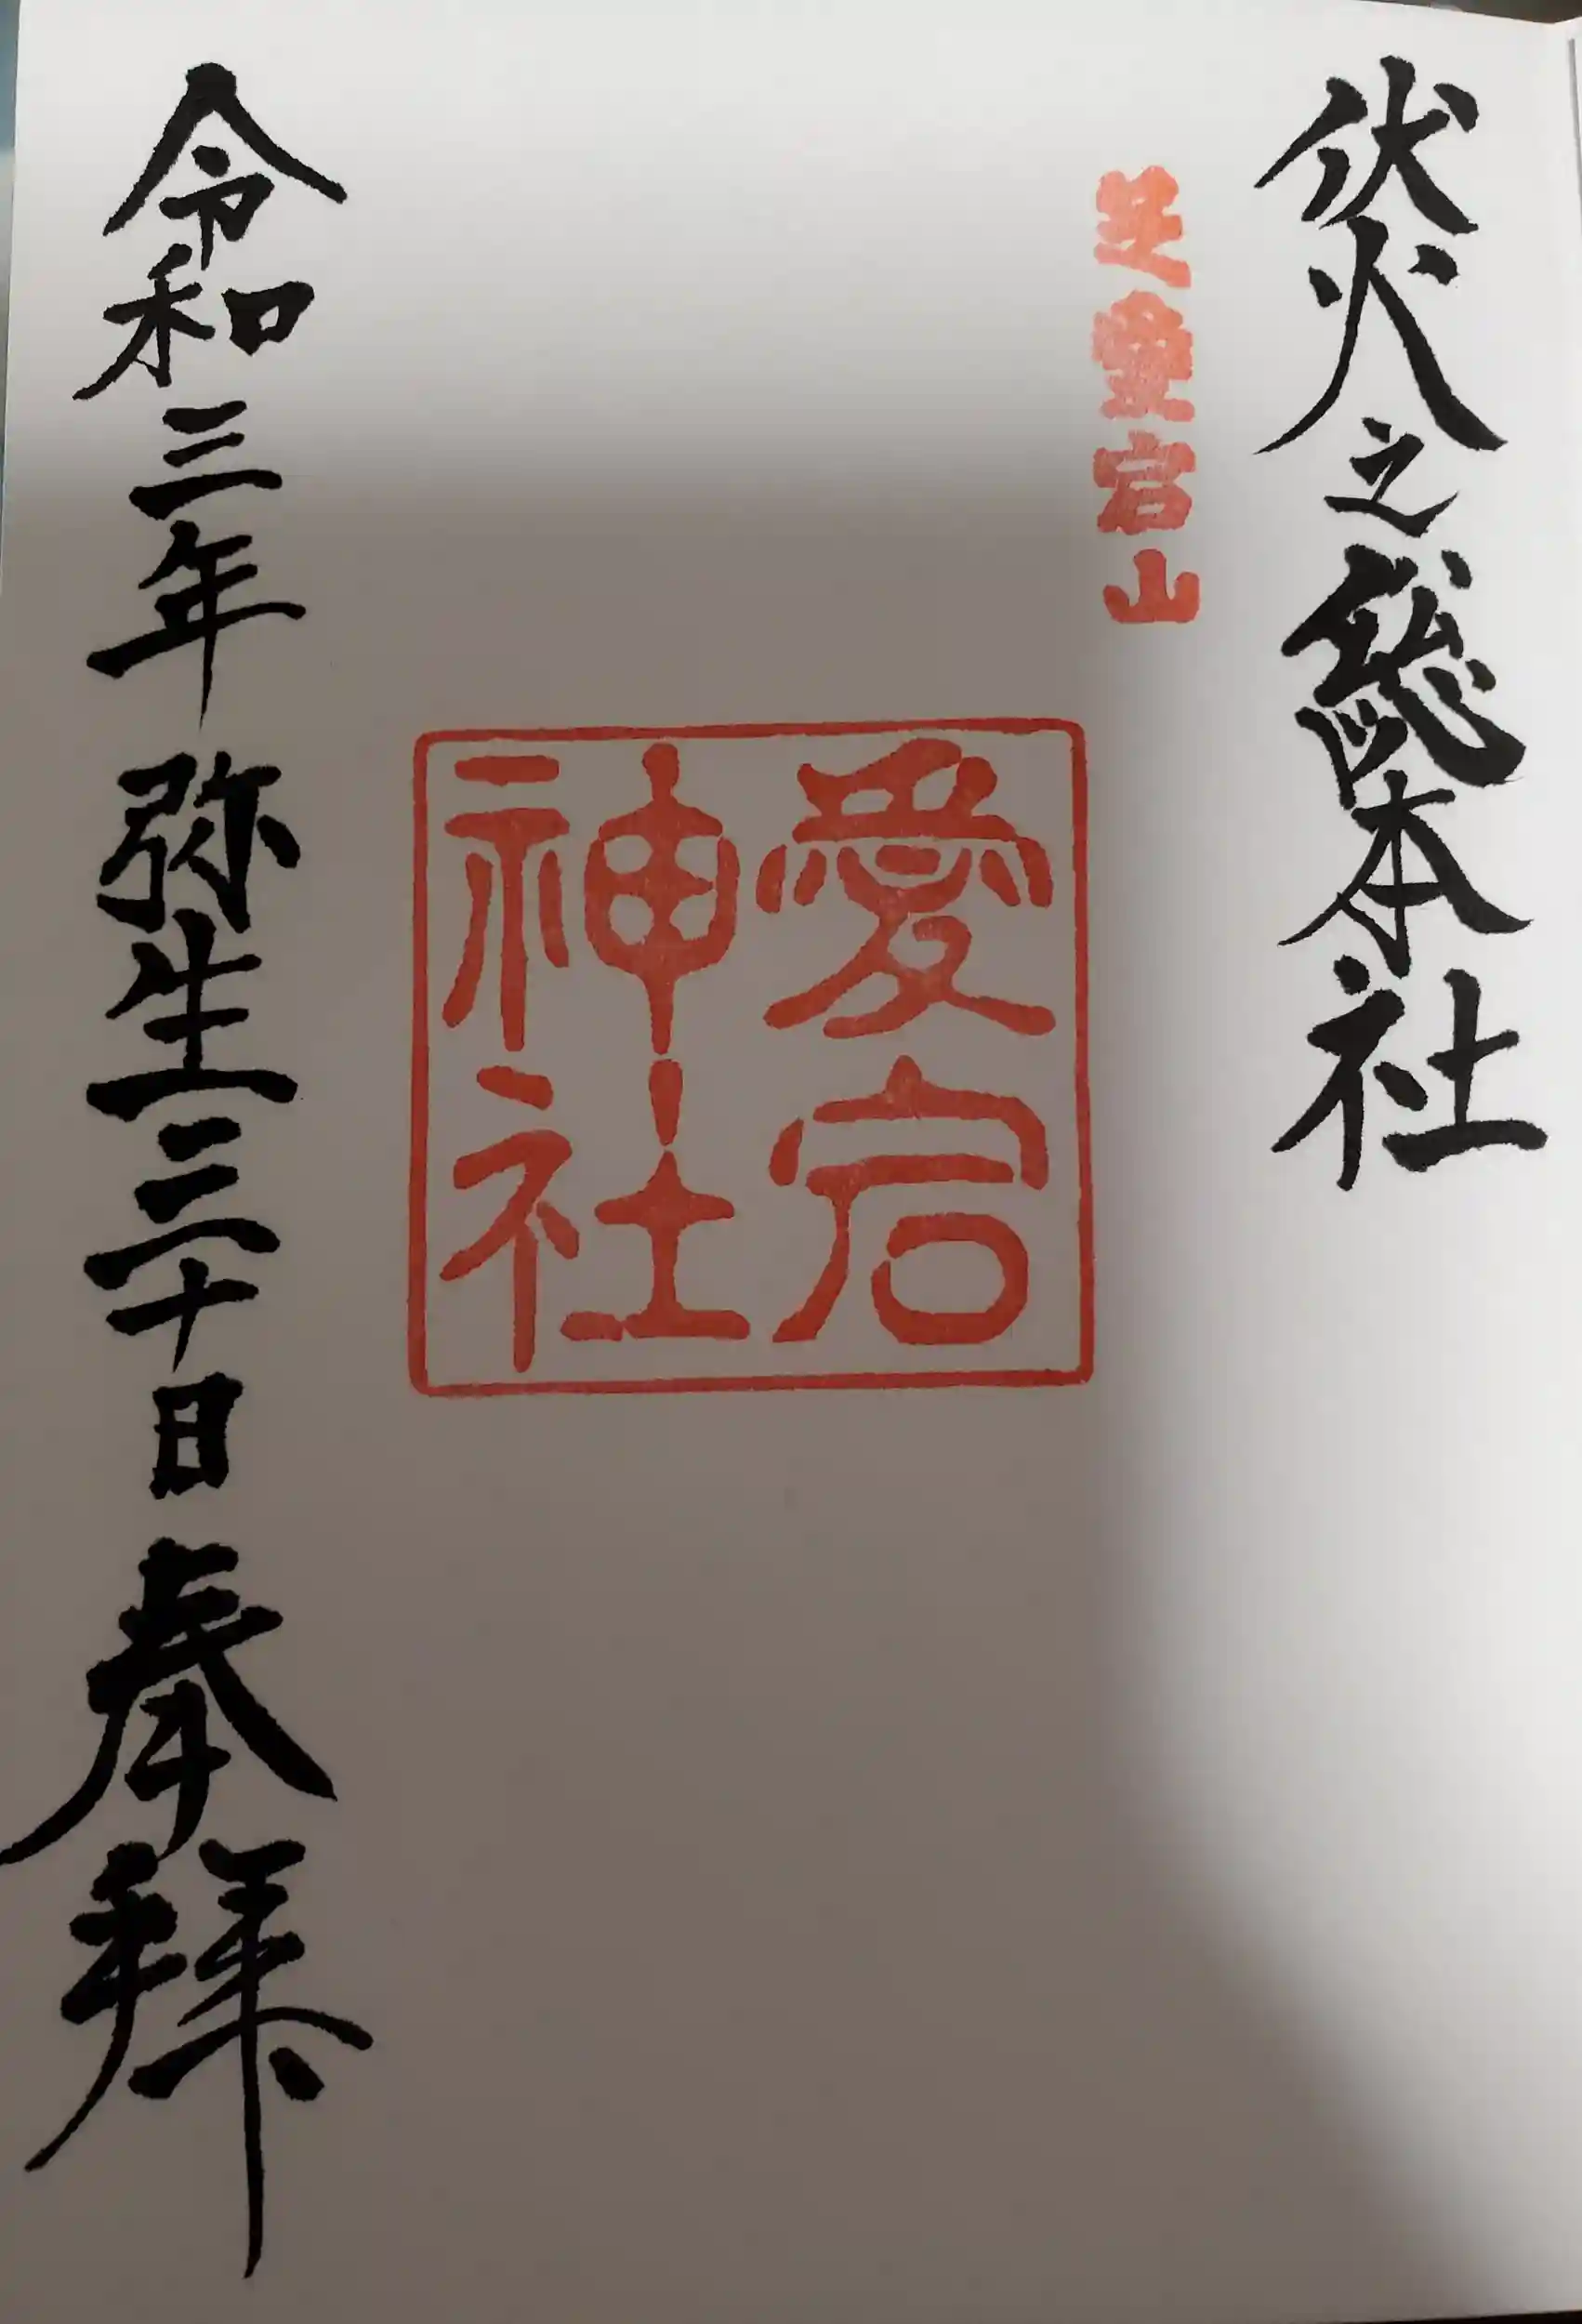 伏火之総本社
芝愛宕山
愛宕
神社
令和三年 弥生三十日 奉拝